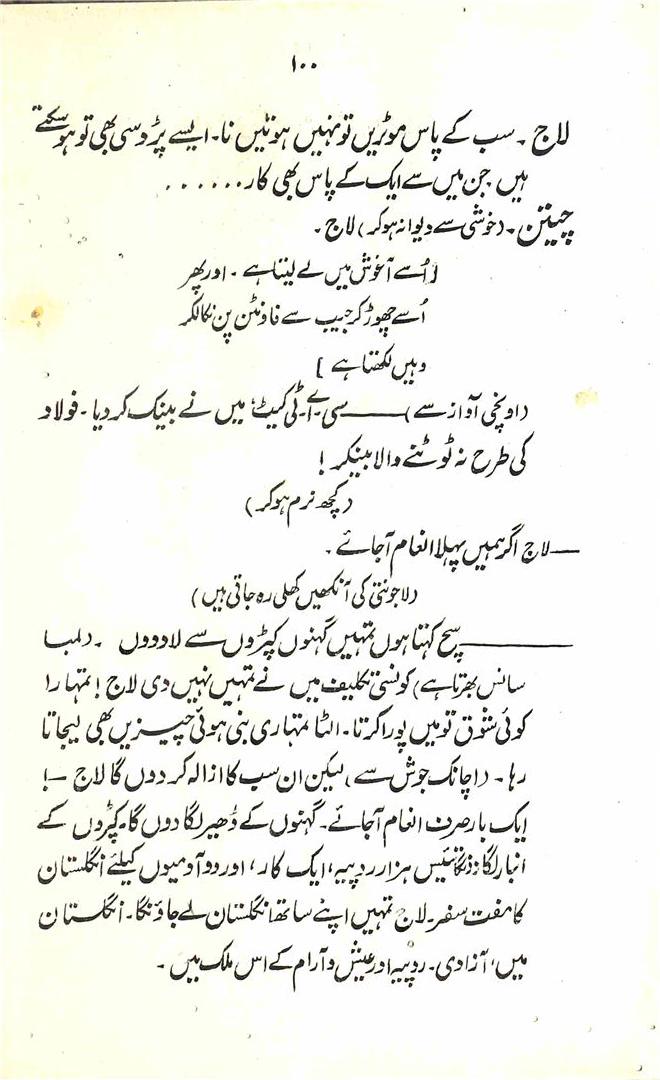 ۱۰۰
لاج ۔ سب کے پاس موٹریں تو نہیں ہوتیں نا۔ ایسے پڑوسی بھی تو ہو سکتے
ہیں جن میں سے ایک کے پاس بھی کار ......
چیتن ۔ (خوشی سے دیوانہ ہو کر) لاج ۔
[اُسے آغوش میں لے لیتا ہے ۔ اور پھر
اُسے چھوڑ کر جیب سے فاونٹن پن نکالکر
وہیں لکھتا ہے ]
(اونچی آواز سے) —— سی ۔ اے ۔ ٹی کیٹ، میں نے بینک کر دیا ۔ فولاد
کی طرح نہ ٹوٹنے والا بینکر !
(کچھ نرم ہو کر)
— لاج اگر ہمیں پہلا انعام آجائے ۔
(لاجونتی کی آنکھیں کھلی رہ جاتی ہیں)
—— سچ کہتا ہوں تمہیں گہنوں کپڑوں سے لاد دوں ۔ (لمبا
سانس بھرتا ہے) کونسی تکلیف میں نے تمہیں نہیں دی لاج ! تمہارا
کوئی شوق تو میں پورا کرتا ۔ الٹا تمہاری بنی ہوئی چیزیں بھی لیجاتا
رہا ۔ (اچانک جوش سے) لیکن ان سب کا ازالہ کر دوں گا لاج —!
ایک بار صرف انعام آجائے ۔ گہنوں کے ڈھیر لگا دوں گا ۔ کپڑوں کے
انبار لگا دونگا تئیس ہزار روپیہ، ایک کار، اور دو آدمیوں کیلئے انگلستان
کا مفت سفر ۔ لاج تمہیں اپنے ساتھ انگلستان لے جاؤنگا ۔ انگلستان
میں، آزادی ۔ روپیہ اور عیش و آرام کے اس ملک میں ۔